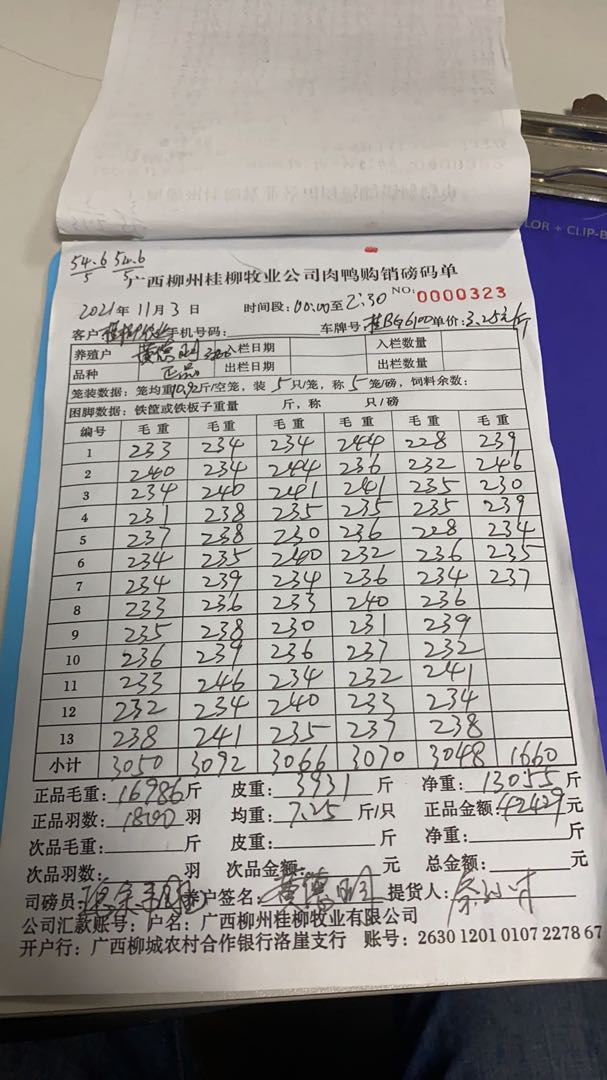 54.6 54.6
5 5
广西柳州桂柳牧业公司肉鸭购销磅码单
2021年 11月 3日 时间段: 00:00至 2:30 NO: 0000323
客户: 手机号码: 车牌号: 桂BG6100 单价: 3.25元/斤
养殖户 黄德明 入栏日期 入栏数量
品种 正品 出栏日期 出栏数量
笼装数据: 笼均重10.92斤/空笼, 装 5 只/笼, 称 5 笼/磅, 饲料余数:
困脚数据: 铁筐或铁板子重量 斤, 称 只/磅
编号 毛重 毛重 毛重 毛重 毛重 毛重
1 233 234 234 244 228 239
2 240 234 244 236 232 246
3 234 240 241 241 235 230
4 231 238 235 235 235 239
5 237 238 230 236 228 234
6 234 235 240 232 236 235
7 234 239 234 236 234 237
8 233 236 233 240 236
9 235 238 230 231 239
10 236 239 236 237 232
11 233 246 234 232 241
12 232 234 240 233 234
13 238 241 235 237 238
小计 3050 3092 3066 3070 3048 1660
正品毛重: 16986斤 皮重: 3931 斤 净重: 13055 斤
正品羽数: 1800 羽 均重: 7.25 斤/只 正品金额: 42429元
次品毛重: 斤 皮重: 斤 净重: 斤
次品羽数: 羽 次品金额: 元 总金额: 元
司磅员: 养户签名: 黄德明 提货人:
公司汇款账号: 户名: 广西柳州桂柳牧业有限公司
开户行: 广西柳城农村合作银行洛崖支行 账号: 2630 1201 0107 2278 67